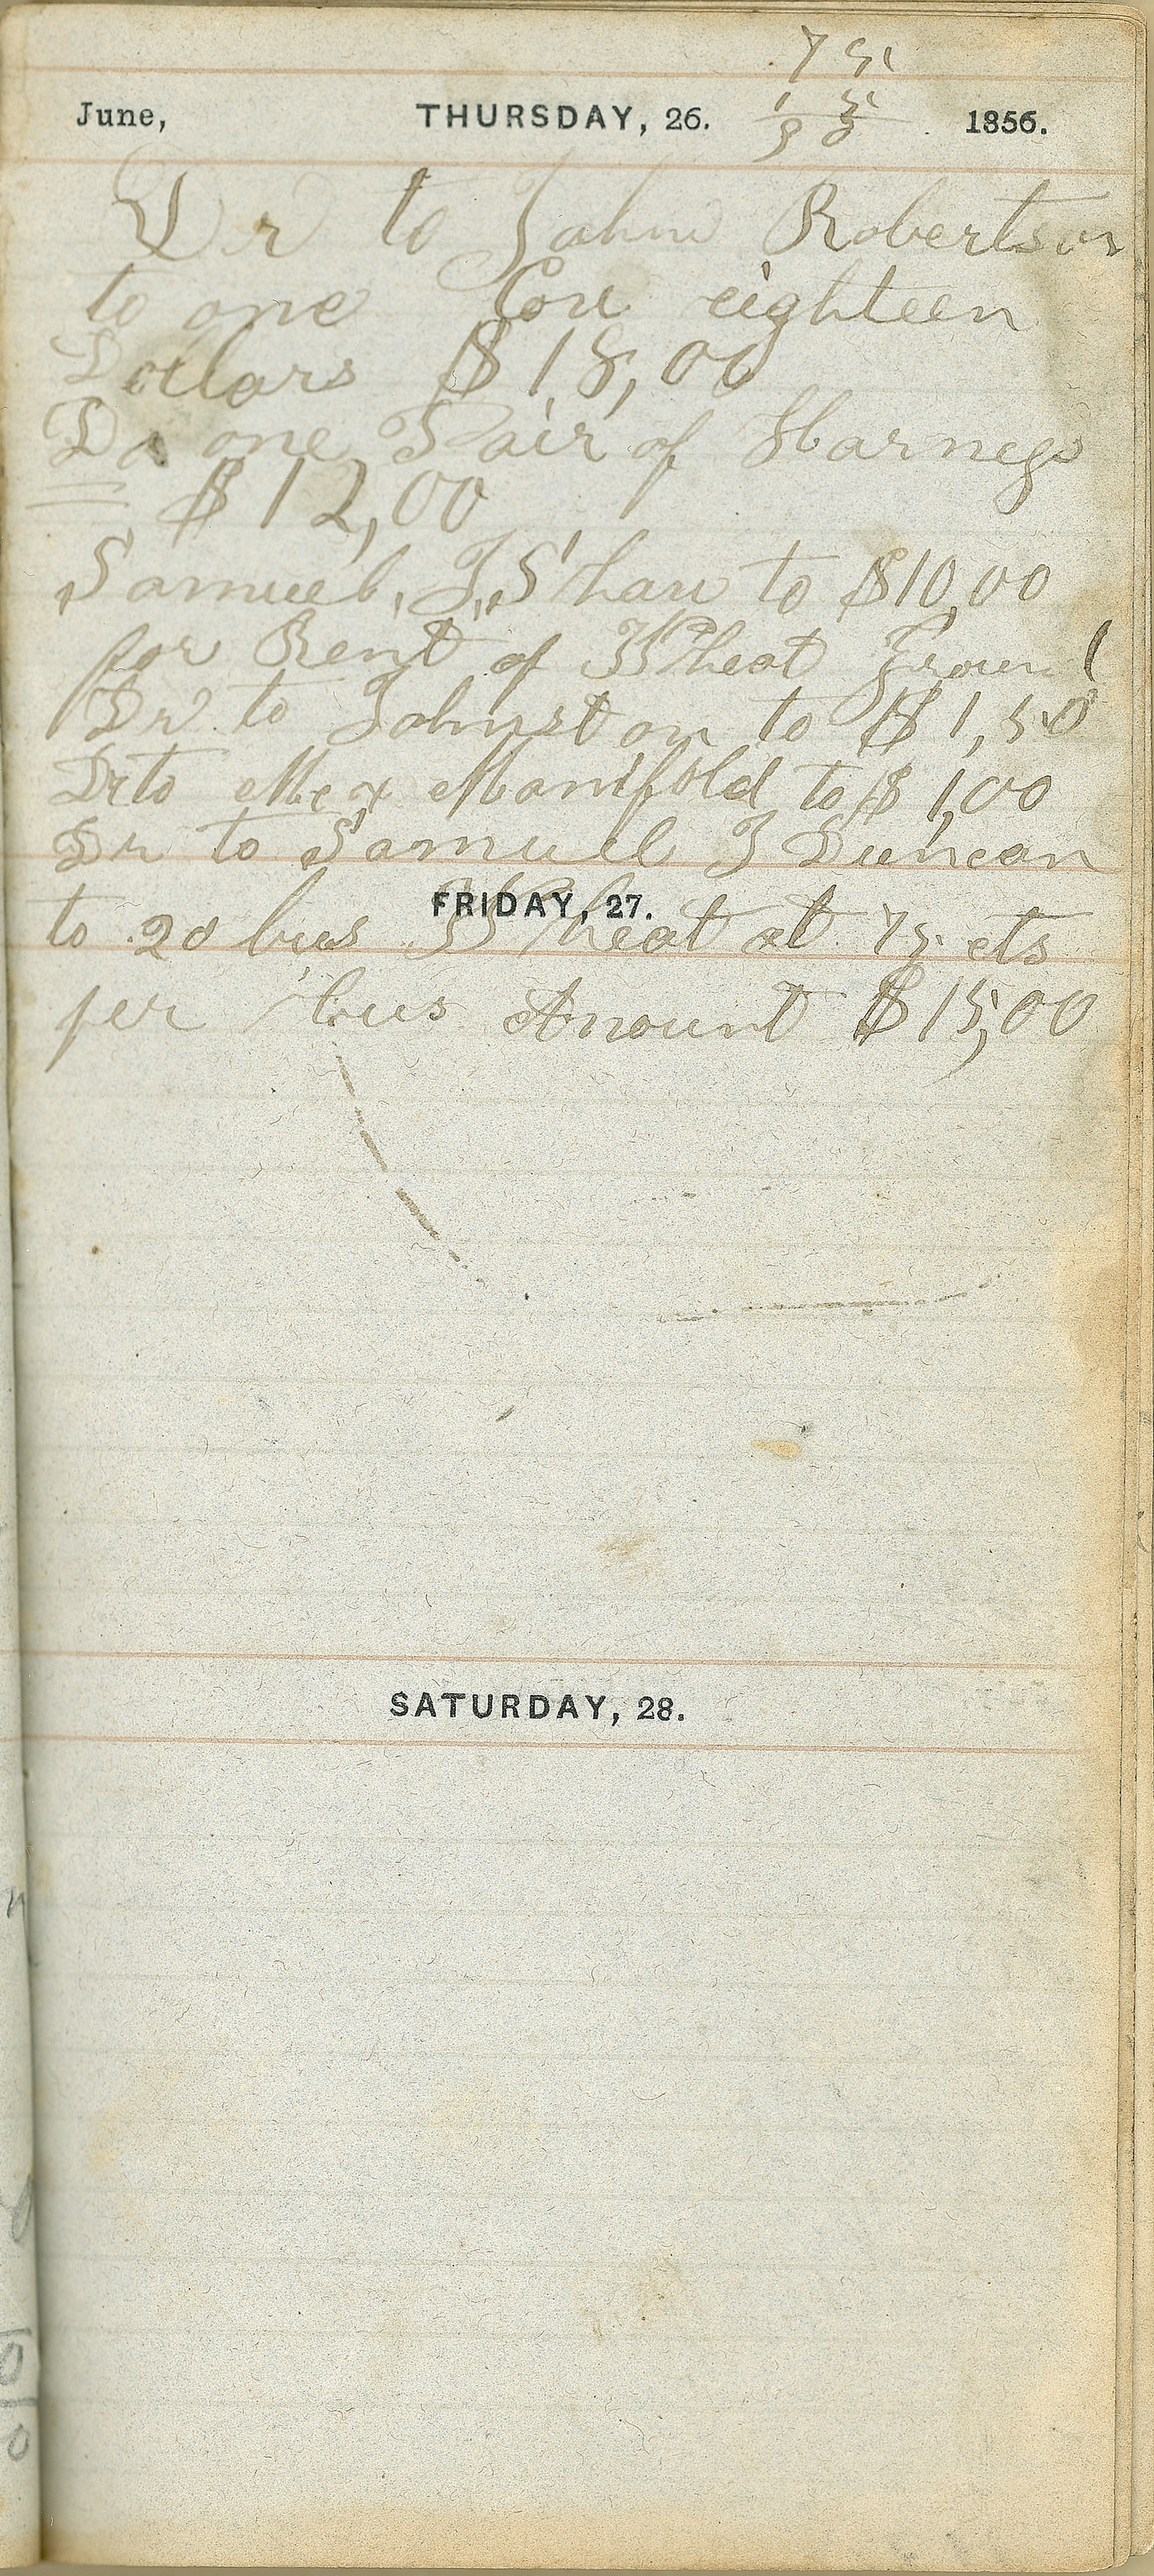 75
June, THURSDAY, 26. 1856.
Dr to John Robertson
to one Cow eighteen
Dollars $18,00
Do one Pair of Harness
= $12,00
Samuel, T, Shaw to $10,00
for Rent of Wheat Ground
Dr to Johnston to $1,50
Dr to Alex Manifold to $1,00
Dr to Samuel T Duncan
FRIDAY, 27.
to 20 bus Wheat at 75 cts
per bus Amount $15,00
SATURDAY, 28.